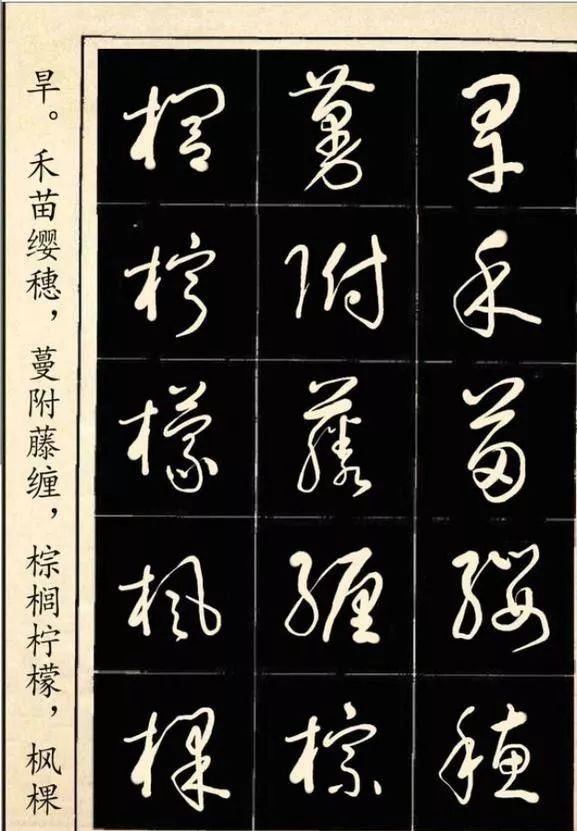 旱禾苗缨穗
蔓附藤缠棕
榈柠檬枫棵
旱。禾苗缨穗，蔓附藤缠，棕榈柠檬，枫棵